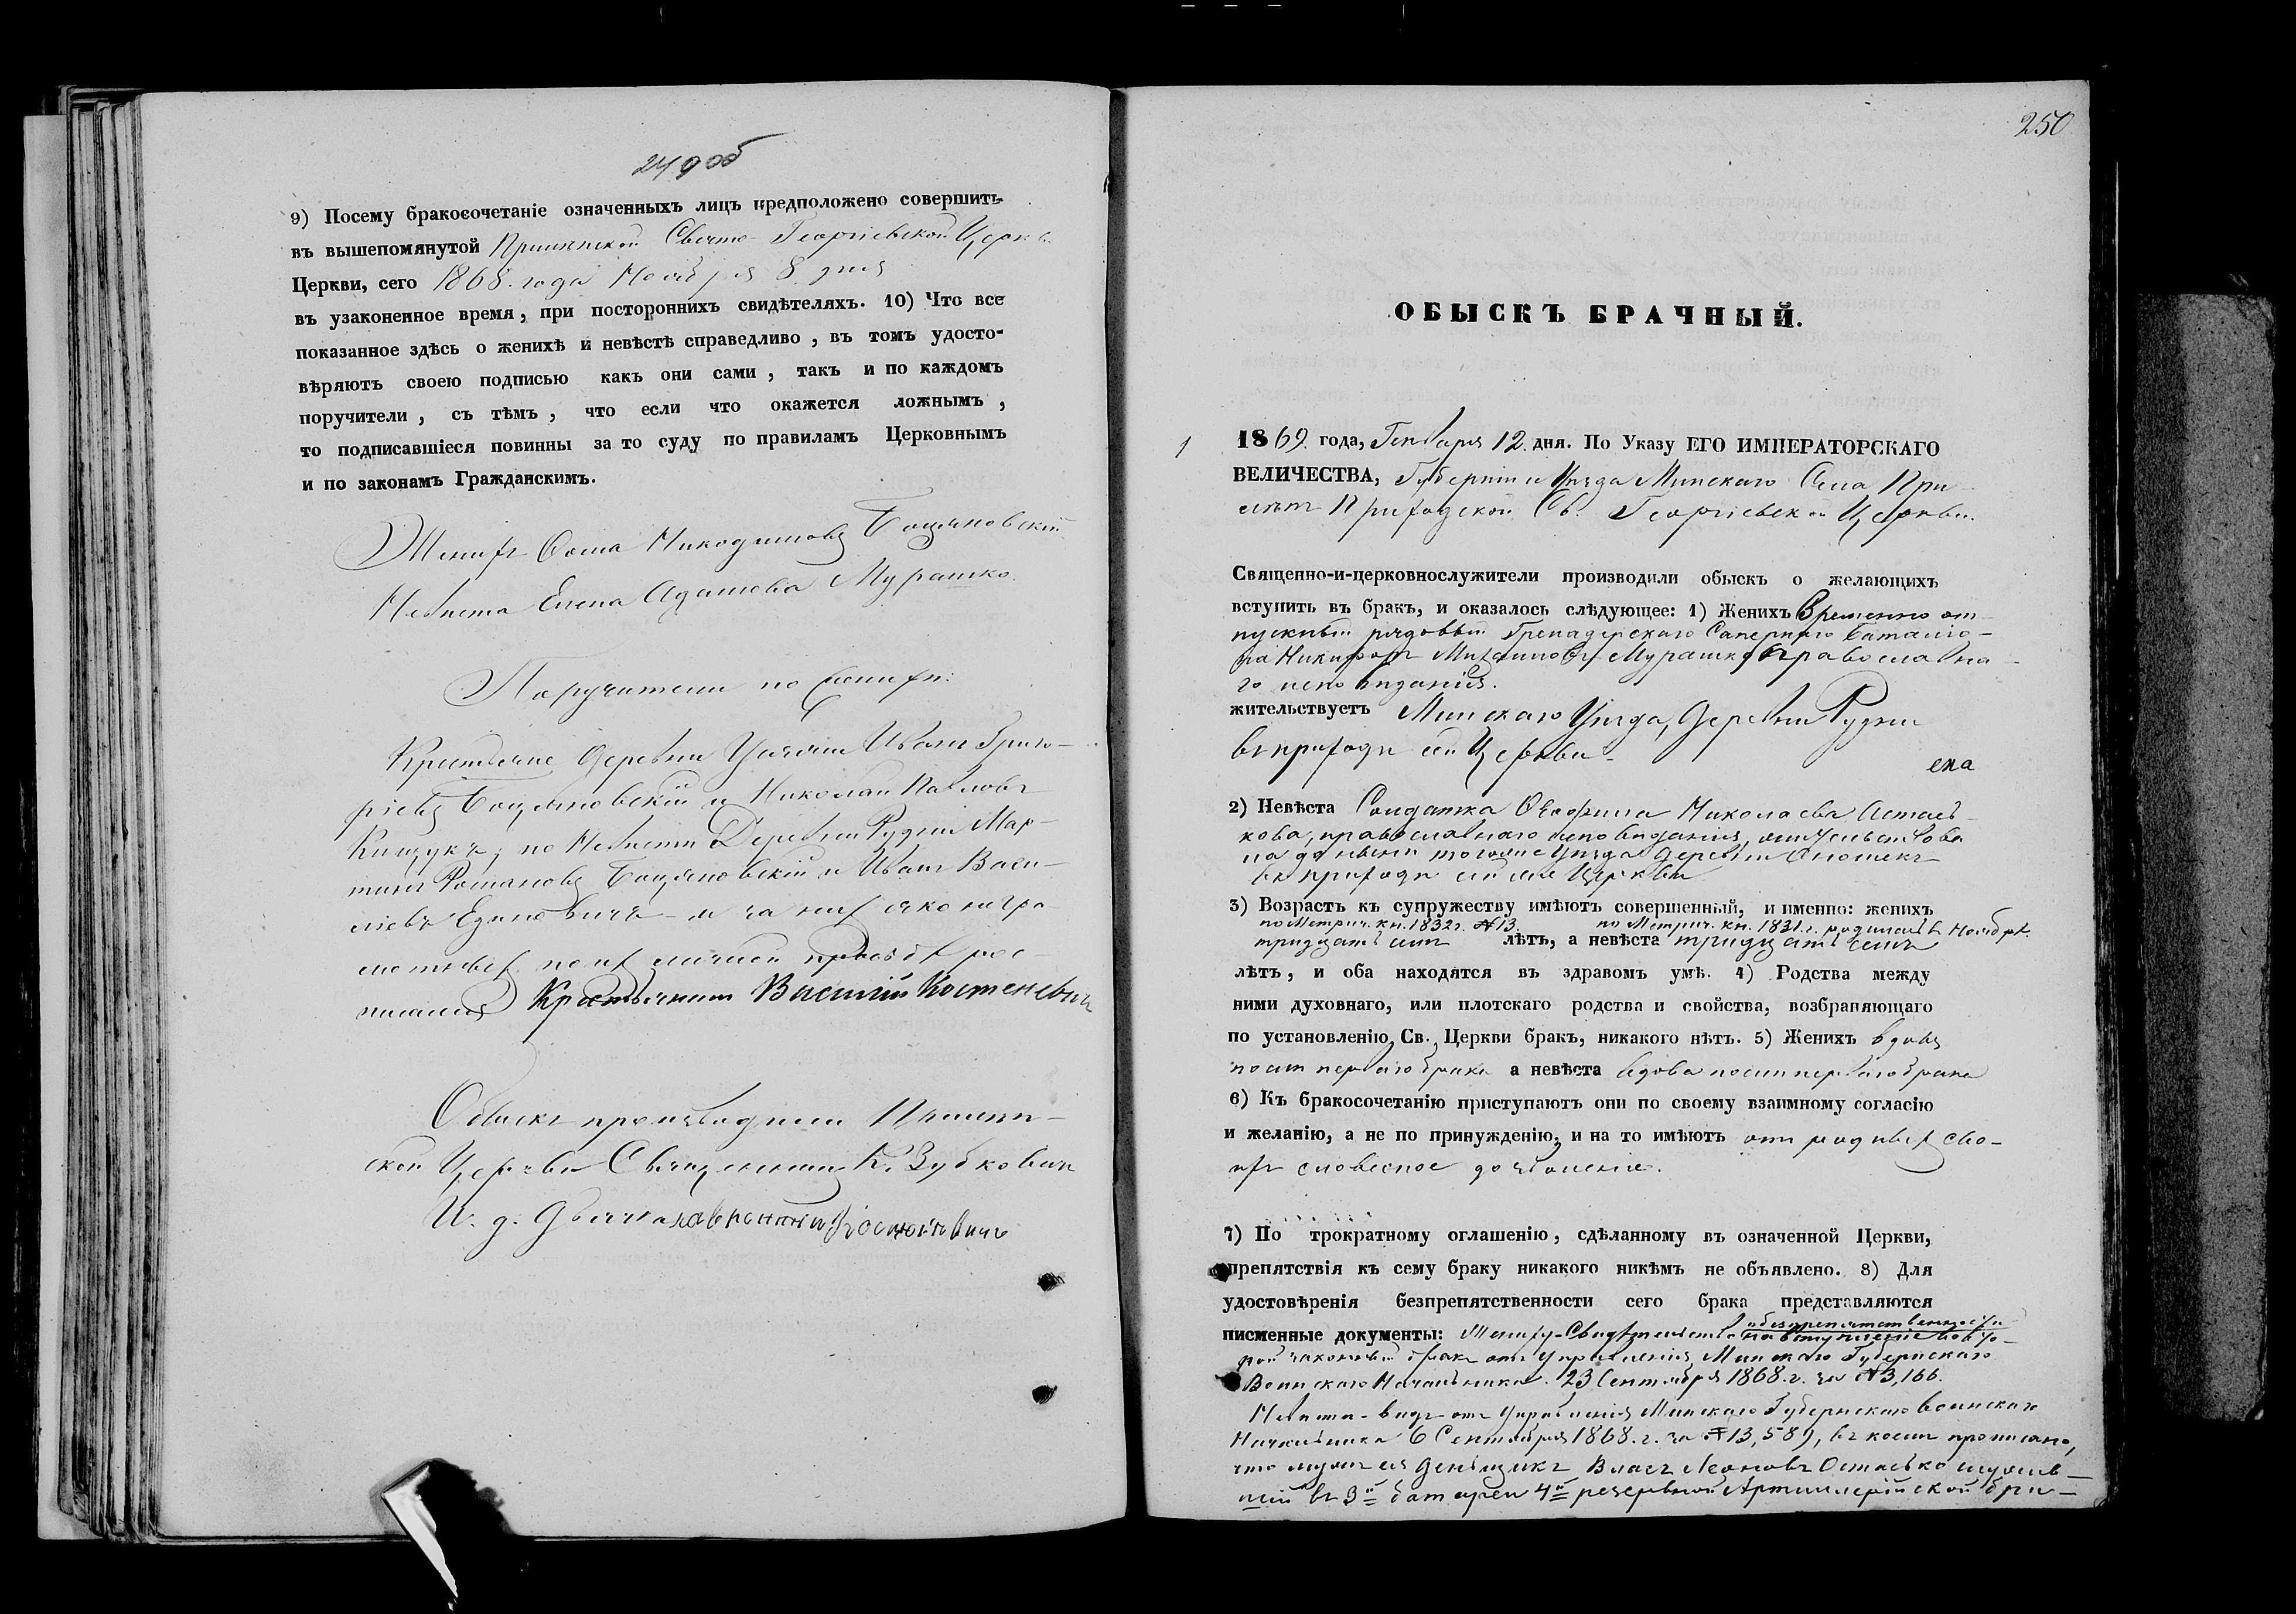 249 об
9) Посему бракосочетаніе означенныхъ лицъ предположено совершить
въ вышепомянутой Прилѣпской Свято-Георгіевской Церкв
Церкви, сего 1868. года Ноября 8. дня
въ узаконенное время, при постороннихъ свидѣтеляхъ. 10) Что все
показанное здѣсь о женихѣ и невѣстѣ справедливо, въ томъ удосто-
вѣряютъ своею подписью какъ они сами, такъ и по каждомъ
поручители, съ тѣмъ, что если что окажется ложнымъ,
то подписавшіеся повинны за то суду по правиламъ Церковнымъ
и по законамъ Гражданскимъ.
Женихъ Ѳома Никодимовъ Боцяновскій
Невѣста Елена Адамова Мурашко.
Поручители по женихѣ:
Крестьяне деревни Иванъ Григо-
ріевъ Боцяновскій и Николай Павловъ
по Невѣстѣ Деревни Рудни Мар-
тинъ Романовъ Боцяновскій и Иванъ Васи-
ліевъ и за нихъ яко негра-
мотныхъ по ихъ личной прозьбѣ рос-
писался Крестьянинъ Василій Костеневичъ
Обыскъ производили Прилѣп-
ской Церкви Священникъ К. Зубковичъ
И. д. Дьячка Лаврентій
250
ОБЫСКЪ БРАЧНЫЙ.
1 1869. года, Генваря 12. дня. По Указу ЕГО ИМПЕРАТОРСКАГО
ВЕЛИЧЕСТВА, Губерніи и Уѣзда Минскаго Села При-
лѣпъ Приходской Св. Георгіевской Церкви.
Священно-и-церковнослужители производили обыскъ о желающихъ
вступить въ бракъ, и оказалось слѣдующее: 1) Женихъ Временно от-
пускный рядовый Гренадерскаго Сапернаго Баталіо-
на Никифоръ Михайловъ Мурашко православна-
го исповѣданія.
жительствуетъ Минскаго Уѣзда, Деревни Рудни
въ приходѣ сей Церкви.
ска
2) Невѣста Солдатка Николаева Астась-
кова, православнаго исповѣданія, жительствова
ла до нынѣ того же Уѣзда деревни
въ приходѣ сей же Церкви
3) Возрастъ къ супружеству имѣютъ совершенный, и именно: женихъ
по Метрич. кн. 1832 г. № 13. по Метрич. кн. 1831. г. родилась въ Ноябрѣ
тридцать семь лѣтъ, а невѣста тридцать семь
лѣтъ, и оба находятся въ здравомъ умѣ. 4) Родства между
ними духовнаго, или плотскаго родства и свойства, возбраняющаго
по установленію Св. Церкви бракъ, никакого нѣтъ. 5) Женихъ вдовъ
послѣ перваго брака а невѣста вдова послѣ перваго брака
6) Къ бракосочетанію приступаютъ они по своему взаимному согласію
и желанію, а не по принужденію, и на то имѣютъ отъ родныхъ сво-
ихъ словесное дозволеніе.
7) По трократному оглашенію, сдѣланному въ означенной Церкви,
препятствія къ сему браку никакого никѣмъ не объявлено. 8) Для
удостовѣренія безпрепятственности сего брака представляются
писменные документы: Жениху-Свидѣтельство о безпрепятственности на вступленіе во вто-
рой законный бракъ отъ Управленія Минскаго Губернскаго
Воинскаго Начальника. 23 Сентября 1868. г. за № 3,166.
Невѣста - видъ отъ Управленія Минскаго Губернскаго Воинскаго
Начальника 6 Сентября 1868. г. за № 13,589, въ коемъ прописано,
что мужъ ея деньщикъ Власъ Леоновъ Остасько служив-
шій въ 3й батареи 4й резервной Артиллерійской бри-